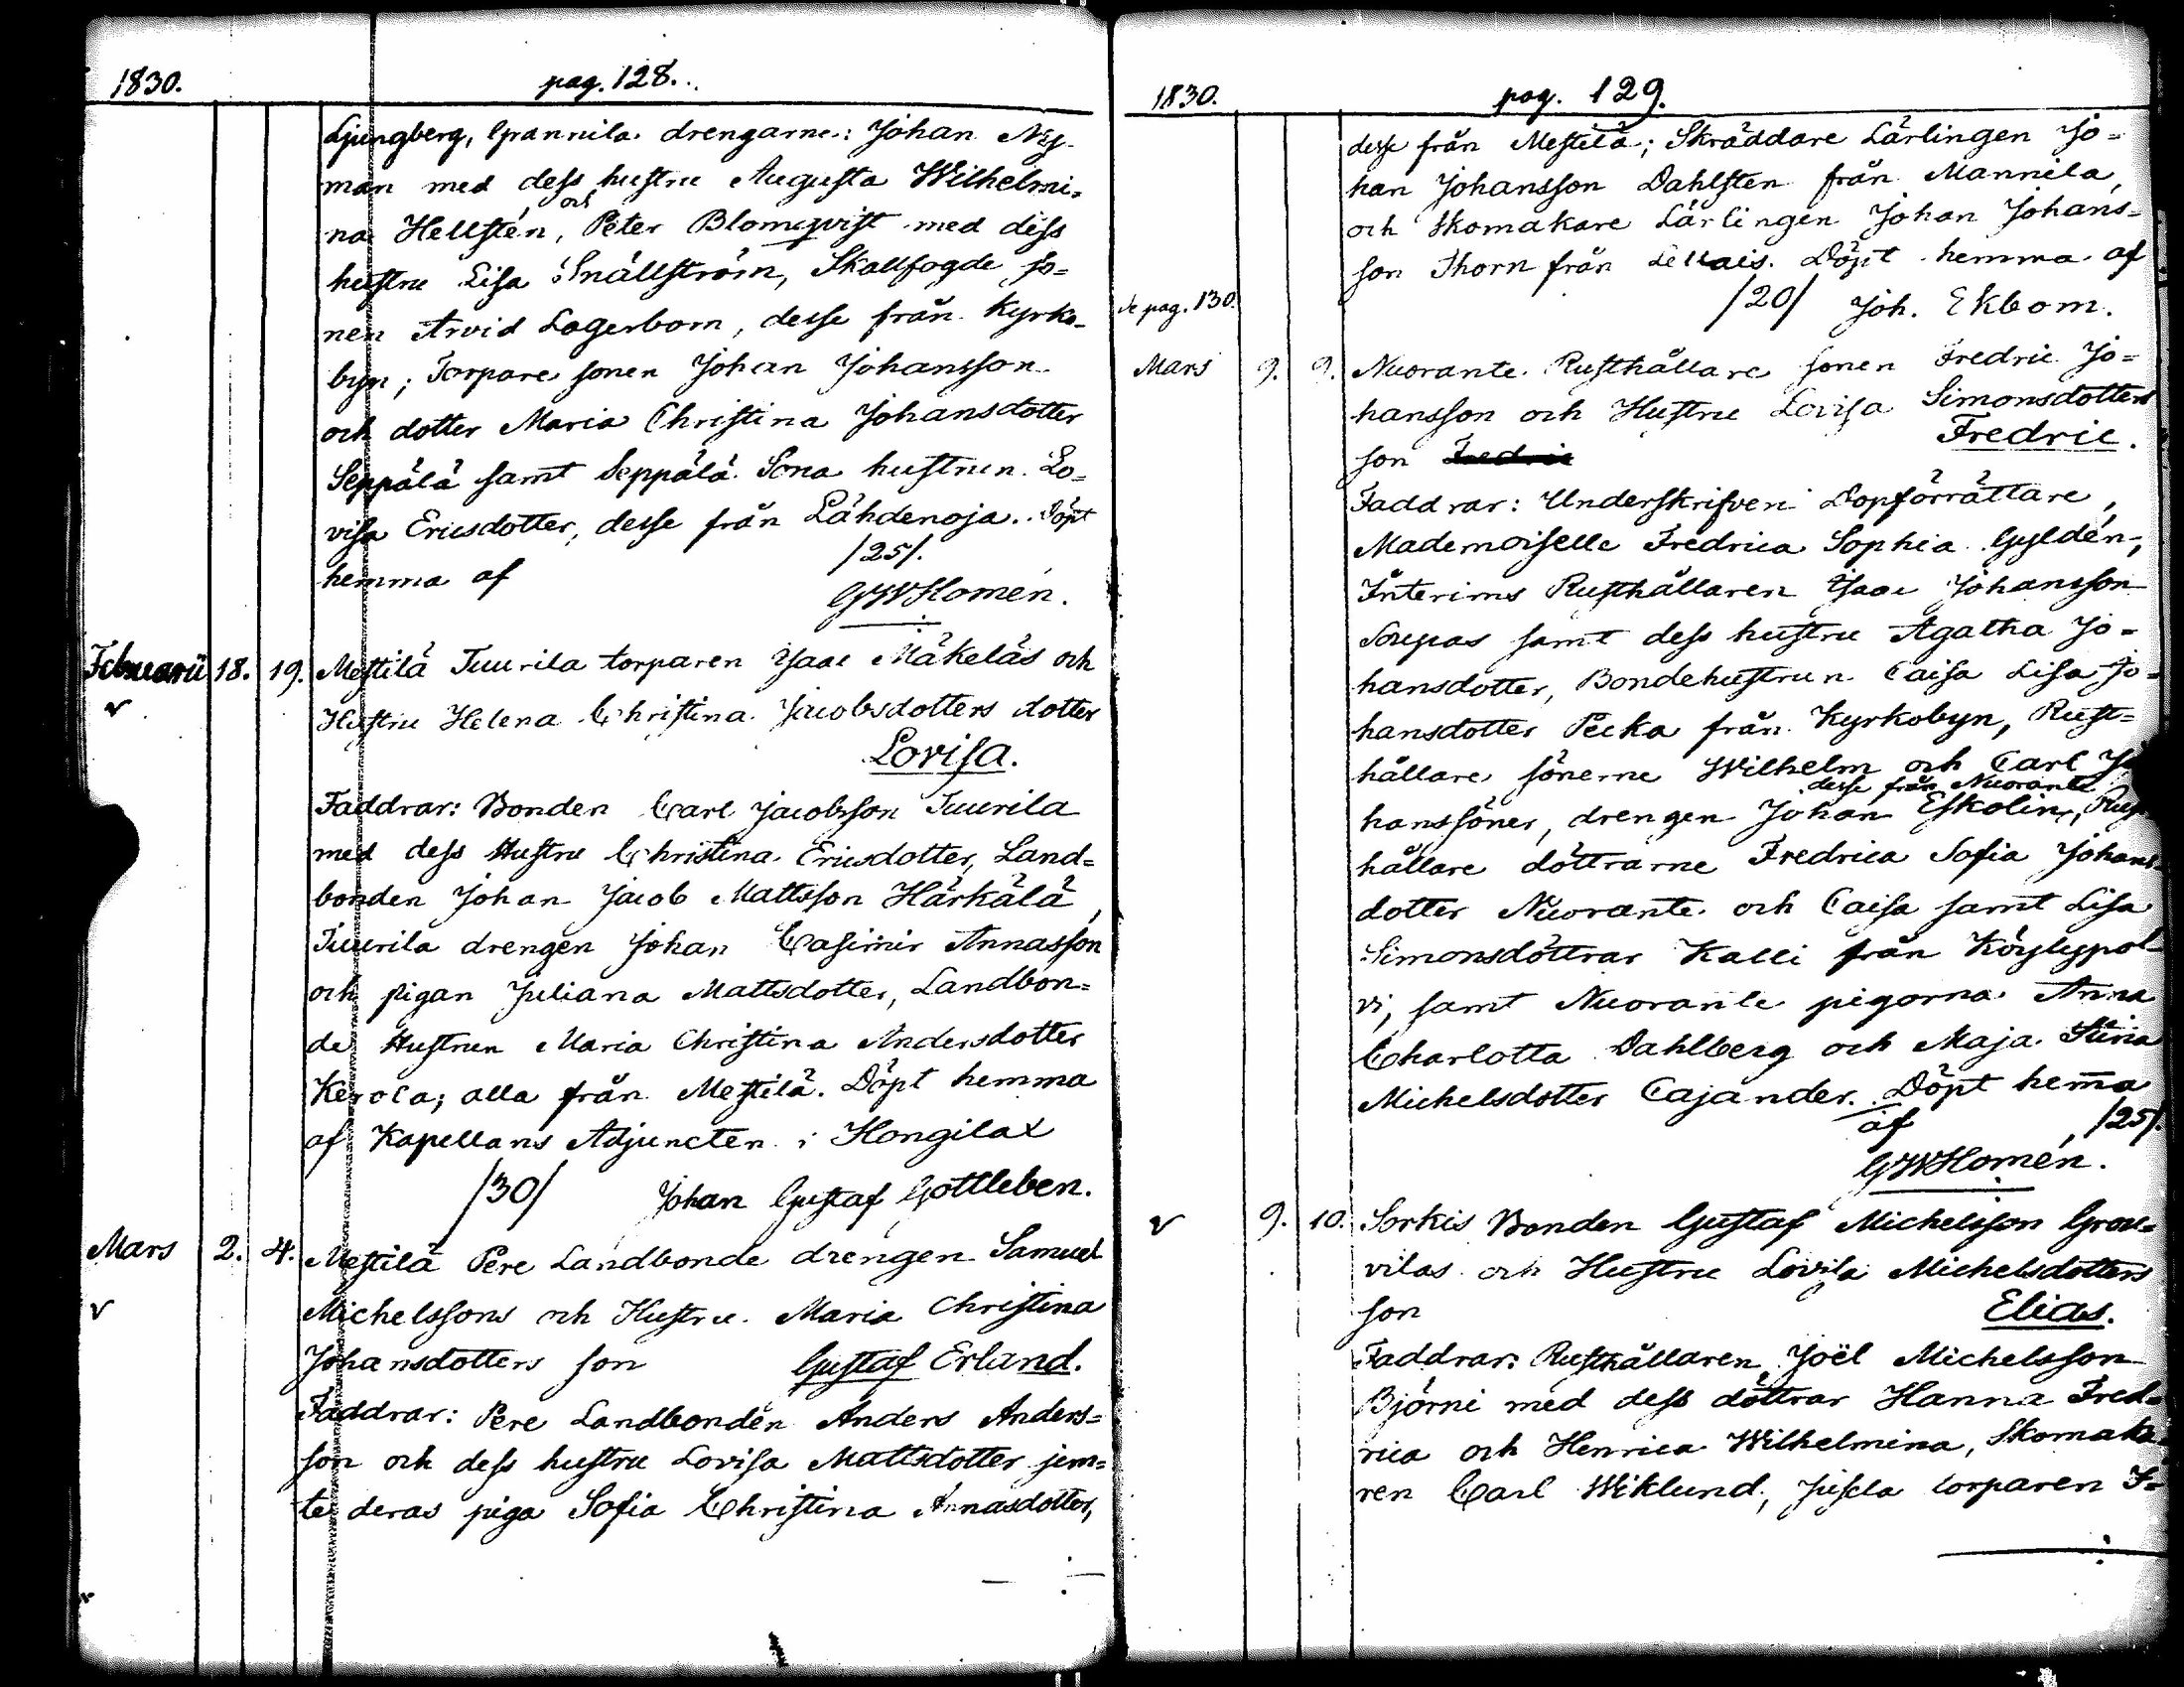 1830. pag. 128.
Ljungberg, Grannila drengarne: Johan Ny-
man med dess hustru Augusta Wilhelmi-
na Hellstén, och Peter Blomqvist med dess
hustru Lisa Snällström, Skallfogde so-
nen Arvid Lagerbom, desse från Kyrko-
byn; Torpare sonen Johan Johansson
och dotter Maria Christina Johansdotter
Seppälä samt Seppälä Sona hustrun Lo-
visa Ericsdotter, desse från Lähdenoja. Döpt
hemma af /25/.
GWHomén.
Februarii 18. 19. Mestilä Tuurila torparen Isaac Mäkeläs och
Hustru Helena Christina Jacobsdotters dotter
Lovisa.
Faddrar: Bonden Carl Jacobsson Tuurila
med dess Hustru Christina Ericsdotter, Land-
bonden Johan Jacob Mattsson Härkälä,
Tuurila drengen Johan Casimir Annasson
och pigan Juliana Mattsdotter, Landbon-
de Hustrun Maria Christina Andersdotter
Kerola; alla från Mestilä. Döpt hemma
af Kapellans Adjuncten i Hongilax
/30/ Johan Gustaf Gottleben.
Mars 2. 4. Mestilä Pere Landbonde drengen Samuel
Michelssons och Hustru Maria Christina
Johansdotters son Gustaf Erland.
Faddrar: Pere Landbonden Anders Anders-
son och dess hustru Lovisa Mattsdotter jem-
te deras piga Sofia Christina Annasdotter,
1830. pag. 129.
desse från Mestilä; Skräddare Lärlingen Jo-
han Johansson Dahlsten från Mannila,
och Skomakare Lärlingen Johan Johans-
son Thorn från Lellais. Döpt hemma af
se pag. 130. /20/ Joh. Ekbom.
Mars 9. 9. Nuorante Rusthållare sonen Fredric Jo-
hansson och Hustru Lovisa Simonsdotters
son Fredric Fredric.
Faddrar: Underskrifven Dopförrättare,
Mademoiselle Fredrica Sophia Gyldén,
Interims Rusthållaren Isaac Johansson
Soupas samt dess hustru Agatha Jo-
hansdotter, Bondehustrun Caisa Lisa Jo-
hansdotter Pecka från Kyrkobyn, Rust-
hållare sönerne Wilhelm och Carl Jo
hanssöner, drengen Johan Eskolin, desse från Nuorante
hållare döttrarne Fredrica Sofia Johans-
dotter Nuorante och Caisa samt Lisa
Simonsdöttrar Kalli från Köylypol-
vi, samt Nuorante pigorna Anna
Charlotta Dahlberg och Maja Stina
Michelsdotter Cajander. Döpt hemma
af /25/.
GWHomén.
9. 10. Sorkis Bonden Gustaf Michelsson Grou-
vilas och Hustru Lovisa Michelsdotters
son Elias.
Faddrar: Rusthållaren Joël Michelsson
Björni med dess döttrar Hanna Fred-
rica och Henrica Wilhelmina, Skomaka-
ren Carl Wiklund, torparen